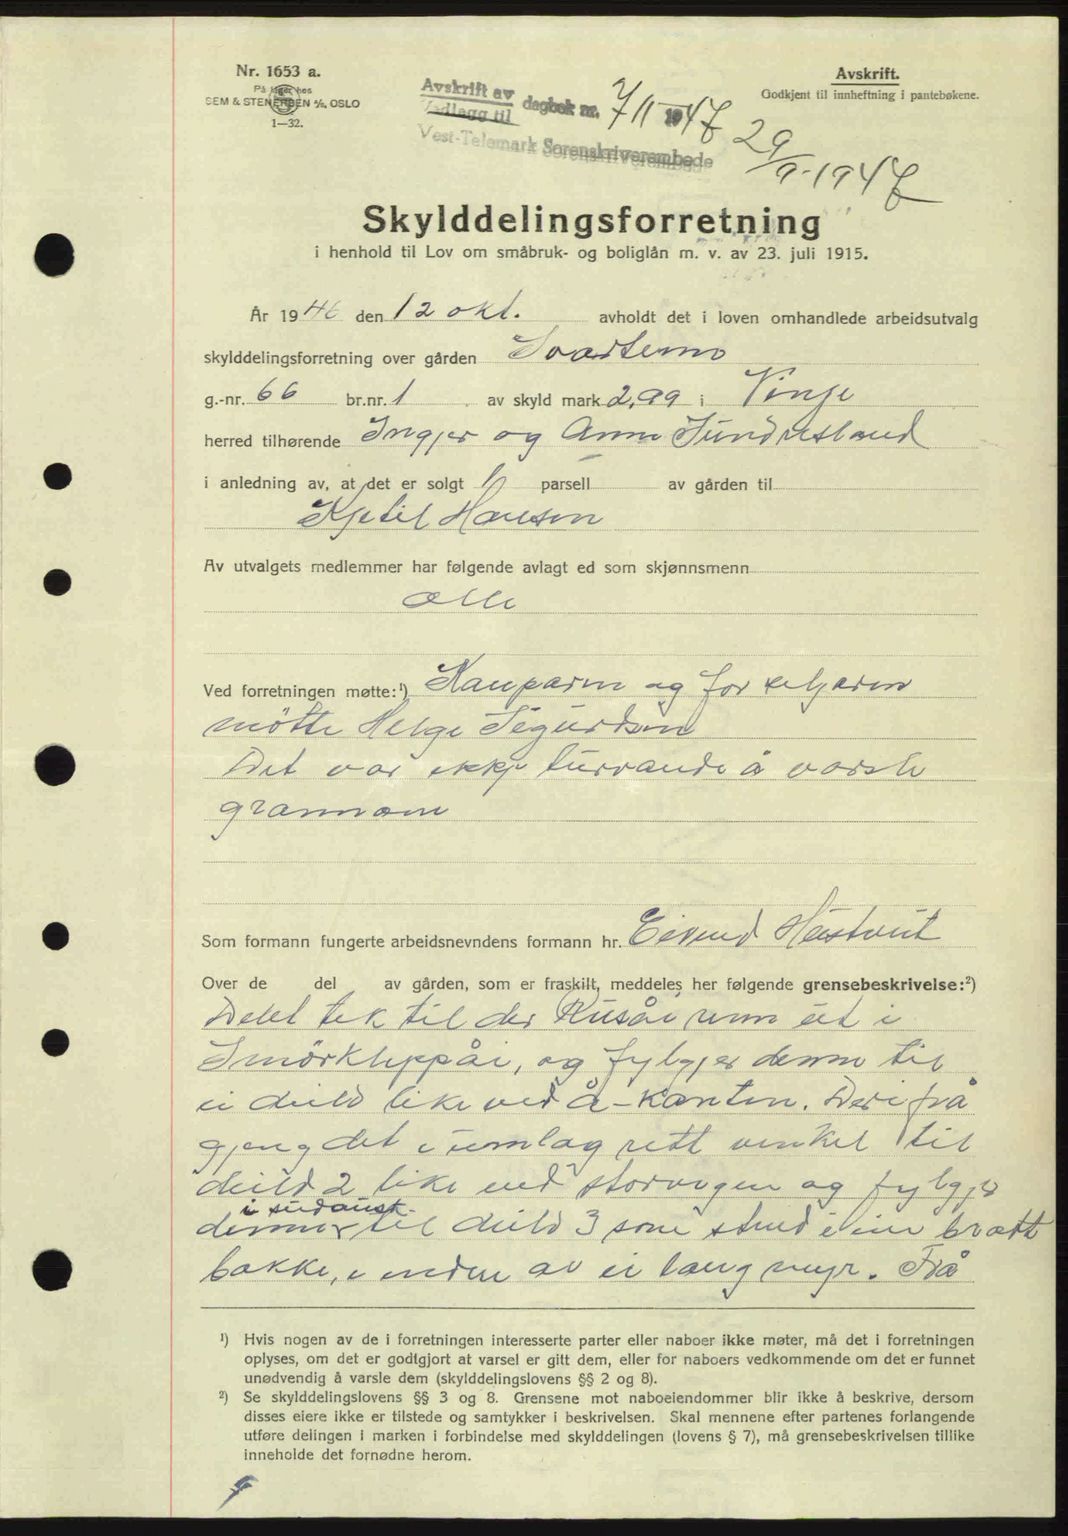 Nr. 1653 a.
På lager hos
SEM & STENERSEN A/S, OSLO
1—32.
Avskrift av
Vedlegg til
dagbok nr. 711 1947
Vest-Telemark Sorenskriverembede
29/9-1947
Avskrift.
Godkjent til innheftning i pantebøkene.
Skylddelingsforretning
i henhold til Lov om småbruk- og boliglån m. v. av 23. juli 1915.
År 1946 den 12 okt. avholdt det i loven omhandlede arbeidsutvalg
skylddelingsforretning over gården Svartemo
g.-nr. 66 br.nr. 1 av skyld mark 2,99 i Vinje
herred tilhørende og Anne
i anledning av, at det er solgt 1 parsell av gården til
Kjetil Hansen
Av utvalgets medlemmer har følgende avlagt ed som skjønnsmenn
alle
Ved forretningen møtte:¹) Kauparen og for seljaren
møtte Helge Sigurdsen
Det var ikkje turvande å varsle
grannane
Som formann fungerte arbeidsnevndens formann hr. Eivind
Over de del av gården, som er fraskilt, meddeles her følgende grensebeskrivelse:²)
Delet tek til der Rusåi renn ut i
Smörkleppåi, og fylgjer denne til
ei deild like ved å-kanten. Derifrå
gjeng det i umlag rett vinkel til
deild 2 like ved storvegen og fylgjer
i sudaust
denne til deild 3 som stend i ein bratt
bakke, i enden av ei lang myr. Frå
¹) Hvis nogen av de i forretningen interesserte parter eller naboer ikke møter, må det i forretningen
oplyses, om det er godtgjort at varsel er gitt dem, eller for naboers vedkommende om det er funnet
unødvendig å varsle dem (skylddelingslovens §§ 2 og 8).
²) Se skylddelingslovens §§ 3 og 8. Grensene mot naboeiendommer blir ikke å beskrive, dersom
disses eiere ikke er tilstede og samtykker i beskrivelsen. Skal mennene efter partenes forlangende
utføre delingen i marken i forbindelse med skylddelingen (lovens § 7), må grensebeskrivelsen tillike
inneholde det fornødne herom.